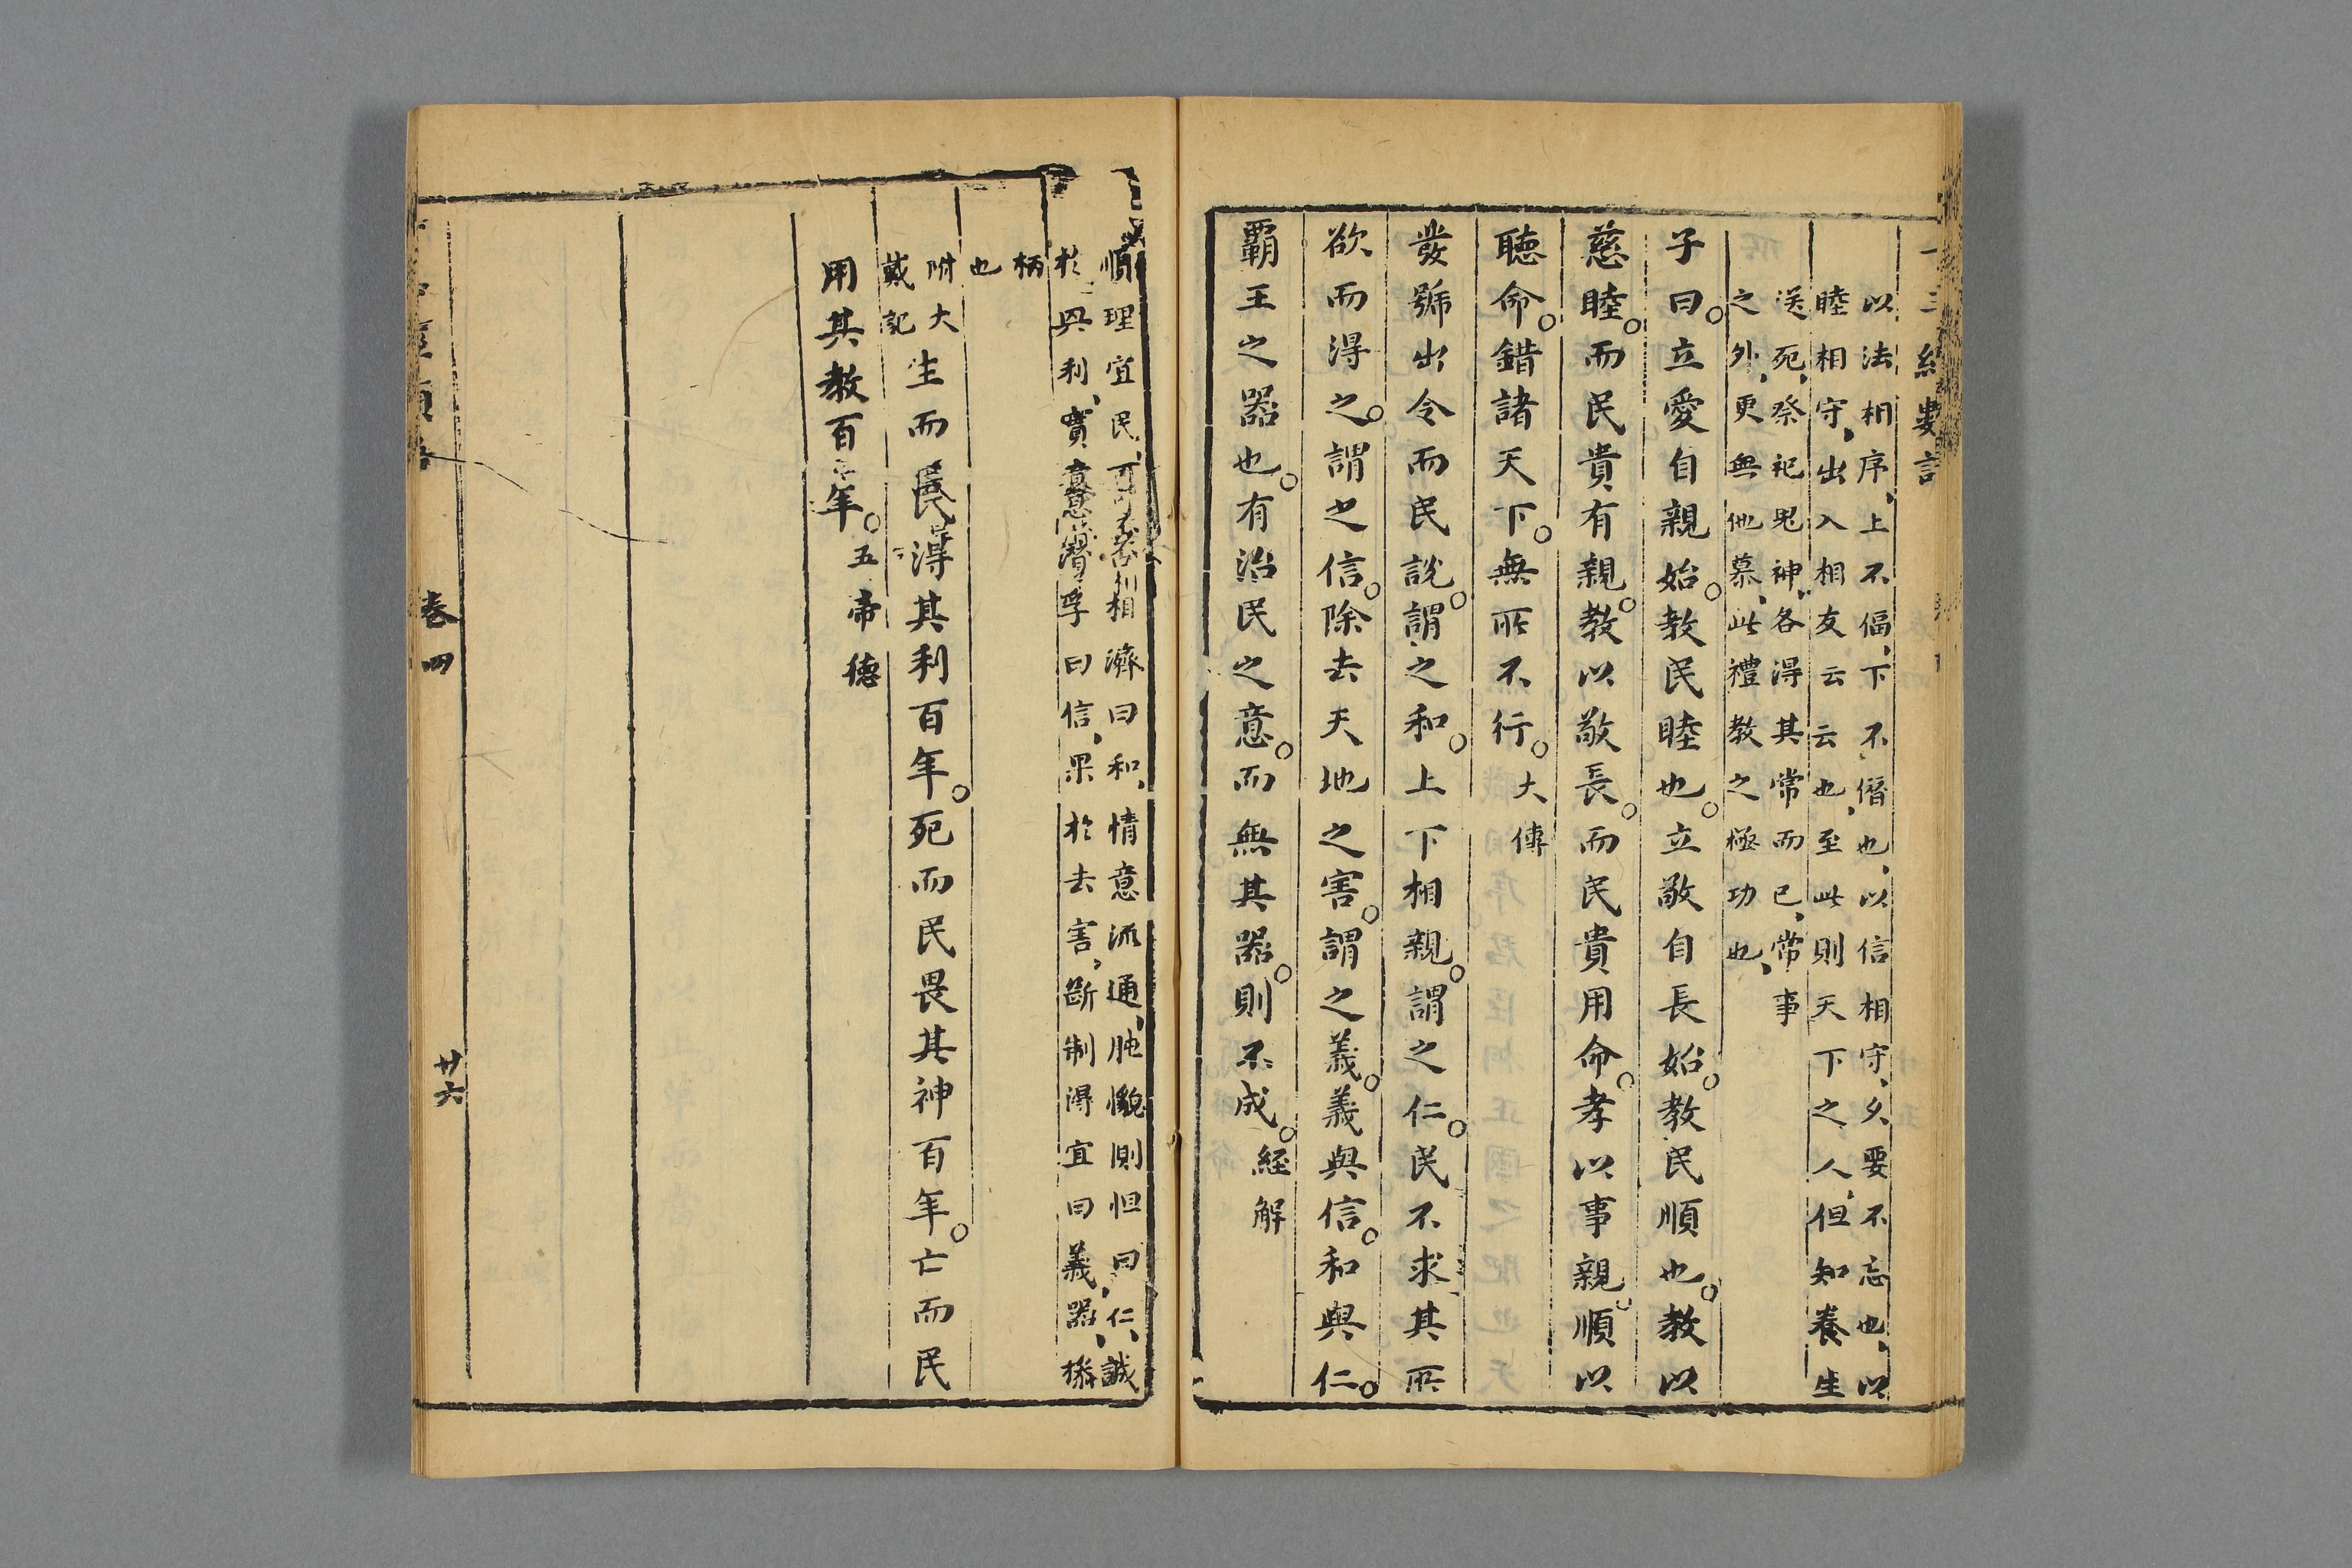 以法相序、上不偪、下不僭也、以信相守、久要不忘也、以
睦相守、出入相友云云也、至此則天下之人、但知養生
送死、祭祀鬼神、各得其常而已、常事
之外、更無他慕、此禮教之極功也、
子曰。立愛自親始。教民睦也。立敬自長始。教民順也。教以
慈睦。而民貴有親。教以敬長。而民貴用命。孝以事親。順以
聽命。錯諸天下。無所不行。大傳
發號出令而民說。謂之和。上下相親。謂之仁。民不求其所
欲而得之。謂之信。除去天地之害。謂之義。義與信。和與仁。
霸王之器也。有治民之意。而無其器。則不成。經解
順理宜民、可否相濟曰和、情意流通、肫懇惻怛曰仁、誠
於興利、實意潛孚曰信、果於去害、斷制得宜曰義、器、機
柄
也
附大
戴記
生而民得其利百年。死而民畏其神百年。亡而民
用其教百年。五帝德
卷四
廿六